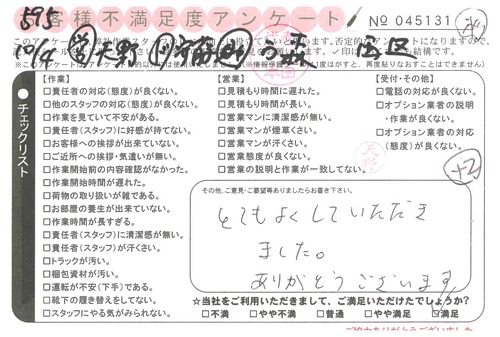 595
お客様不満足度アンケート
№ 045131
【作業】
□責任者の対応(態度)が良くない。
□他のスタッフの対応(態度)が良くない。
□作業を見ていて不安がある。
□責任者(スタッフ)に好感が持てない。
□お客様への挨拶が出来ていない。
□ご近所への挨拶・気遣いが無い。
□作業開始前の内容確認がなかった。
□作業開始時間が遅れた。
□荷物の取り扱いが雑である。
□お部屋の養生が出来ていない。
□作業時間が長すぎる。
□責任者(スタッフ)に清潔感が無い。
□責任者(スタッフ)が汗くさい。
□トラックが汚い。
□梱包資材が汚い。
□運転が不安(下手)である。
□靴下の履き替えをしてない。
□スタッフにやる気がみられない。
【営業】
□見積もり時間に遅れた。
□見積もり時間が長い。
□営業マンに清潔感が無い。
□営業マンが煙草くさい。
□営業マンが汗くさい。
□営業態度が良くない。
□営業の説明と作業が一致してない。
【受付・その他】
□電話の対応が良くない。
□オプション業者の説明
・作業が良くない。
□オプション業者の対応
(態度)が良くない。
チェックリスト
+2
その他、ご意見・ご要望等ありましたらお書き下さい。
とてもよくしていただき
ました。
ありがとうございます
☆当社をご利用いただきまして、ご満足いただけたでしょうか?
□不満 □やや不満 □普通 □やや満足 ☑満足
ご協力ありがとうございました